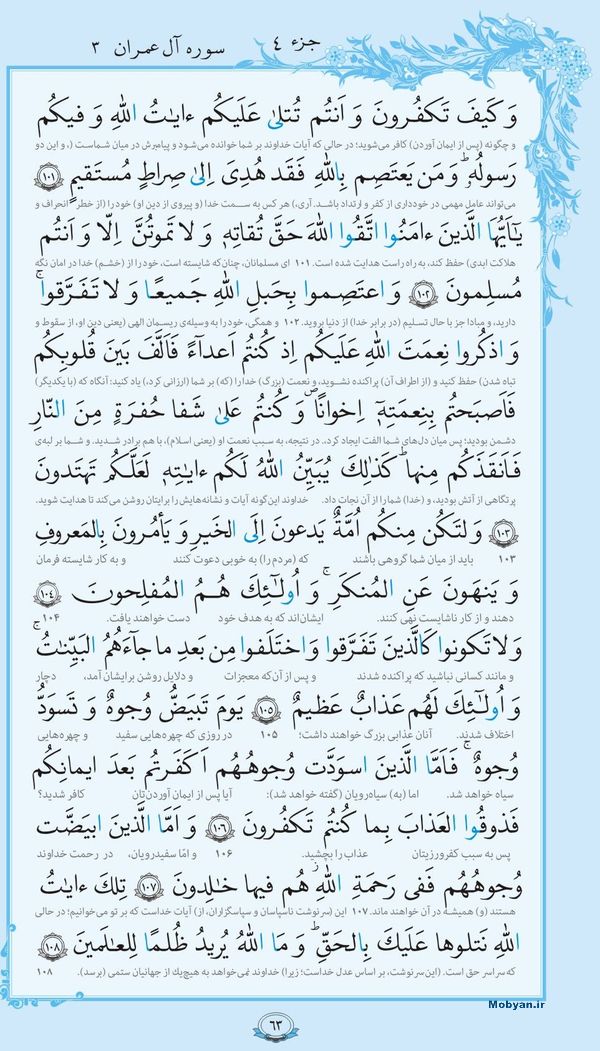 جزء ۴
سوره آل عمران ۳
وَ كَيفَ تَكفُرونَ وَ اَنتُم تُتلىٰ عَلَيكُم ءاياتُ اللهِ وَ فيكُم
و چگونه (پس از ایمان آوردن) کافر می‌شوید؛ در حالی که آیات خداوند بر شما خوانده می‌شود و پیامبرش در میان شماست (، و این دو
رَسولُهُ ۗ وَ مَن يَعتَصِم بِاللهِ فَقَد هُدِىَ اِلىٰ صِراطٍ مُستَقيمٍ ۱۰۱
می‌تواند عامل مهمی در خودداری از کفر و ارتداد باشد. آری،) هر کس به سمت خدا (و پیروی از دین او) خود را (از خطر انحراف و
يٰٓاَيُّهَا الَّذينَ ءامَنُوا اتَّقُوا اللهَ حَقَّ تُقاتِهٖ وَ لا تَموتُنَّ اِلّا وَ اَنتُم
هلاکت ابدی) حفظ کند، به راه راست هدایت شده است. ۱۰۱ ای مسلمانان، چنان‌که شایسته است، خود را از (خشم) خدا در امان نگه
مُسلِمونَ ۱۰۲ وَ اعتَصِموا بِحَبلِ اللهِ جَميعًا وَ لا تَفَرَّقوا ۚ
دارید، و مبادا جز با حال تسلیم (در برابر خدا) از دنیا بروید. ۱۰۲ و همگی، خود را به وسیله‌ی ریسمان الهی (یعنی دین او، از سقوط و
وَ اذكُروا نِعمَتَ اللهِ عَلَيكُم اِذ كُنتُم اَعدآءً فَاَلَّفَ بَينَ قُلوبِكُم
تباه شدن) حفظ کنید و (از اطراف آن) پراکنده نشوید، و نعمت (بزرگ) خدا را (که) بر شما (ارزانی کرد،) یاد کنید: آنگاه که (با یکدیگر)
فَاَصبَحتُم بِنِعمَتِهٖٓ اِخوانًا ۖ وَ كُنتُم عَلىٰ شَفا حُفرَةٍ مِنَ النّارِ
دشمن بودید؛ پس میان دل‌های شما الفت ایجاد کرد. در نتیجه، به سبب نعمت او (یعنی اسلام)، با هم برادر شدید. و شما بر لبه‌ی
فَاَنقَذَكُم مِنها ۗ كَذٰلِكَ يُبَيِّنُ اللهُ لَكُم ءاياتِهٖ لَعَلَّكُم تَهتَدونَ
پرتگاهی از آتش بودید، و (خدا) شما را از آن نجات داد. خداوند این‌گونه آیات و نشانه‌هایش را برایتان روشن می‌کند تا هدایت شوید.
۱۰۳ وَلتَكُن مِنكُم اُمَّةٌ يَدعونَ اِلَى الخَيرِ وَ يَأمُرونَ بِالمَعروفِ
۱۰۳ باید از میان شما گروهی باشند که (مردم را) به خوبی دعوت کنند و به کار شایسته فرمان
وَ يَنهَونَ عَنِ المُنكَرِ ۚ وَ اُولٰٓئِكَ هُمُ المُفلِحونَ ۱۰۴
دهند و از کار ناشایست نهی کنند. ایشان‌اند که به هدف خود دست خواهند یافت. ۱۰۴
وَلا تَكونوا كَالَّذينَ تَفَرَّقوا وَ اختَلَفوا مِن بَعدِ ما جآءَهُمُ البَيِّناتُ ۚ
و مانند کسانی نباشید که پراکنده شدند و پس از آن‌که معجزات و دلایل روشن برایشان آمد، دچار
وَ اُولٰٓئِكَ لَهُم عَذابٌ عَظيمٌ ۱۰۵ يَومَ تَبيَضُّ وُجوهٌ وَ تَسوَدُّ
اختلاف شدند. آنان عذابی بزرگ خواهند داشت؛ ۱۰۵ در روزی که چهره‌هایی سفید و چهره‌هایی
وُجوهٌ ۚ فَاَمَّا الَّذينَ اسوَدَّت وُجوهُهُم اَكَفَرتُم بَعدَ ايمانِكُم
سیاه خواهد شد. اما (به) سیاه‌رویان (گفته خواهد شد): آیا پس از ایمان آوردن‌تان کافر شدید؟
فَذوقُوا العَذابَ بِما كُنتُم تَكفُرونَ ۱۰۶ وَ اَمَّا الَّذينَ ابيَضَّت
پس به سبب کفرورزیتان عذاب را بچشید. ۱۰۶ و امّا سفیدرویان، در رحمت خداوند
وُجوهُهُم فَفى رَحمَةِ اللهِ ۖ هُم فيها خالِدونَ ۱۰۷ تِلكَ ءاياتُ
هستند (و) همیشه در آن خواهند ماند. ۱۰۷ این (سرنوشت ناسپاسان و سپاسگزاران، از) آیات خداست که بر تو می‌خوانیم؛ در حالی
اللهِ نَتلوها عَلَيكَ بِالحَقِّ ۗ وَ مَا اللهُ يُريدُ ظُلمًا لِلعالَمينَ ۱۰۸
که سراسر حق است. (این سرنوشت، بر اساس عدل خداست؛ زیرا) خداوند نمی‌خواهد به هیچ‌یک از جهانیان ستمی (برسد). ۱۰۸
۶۳
Mobyan.ir